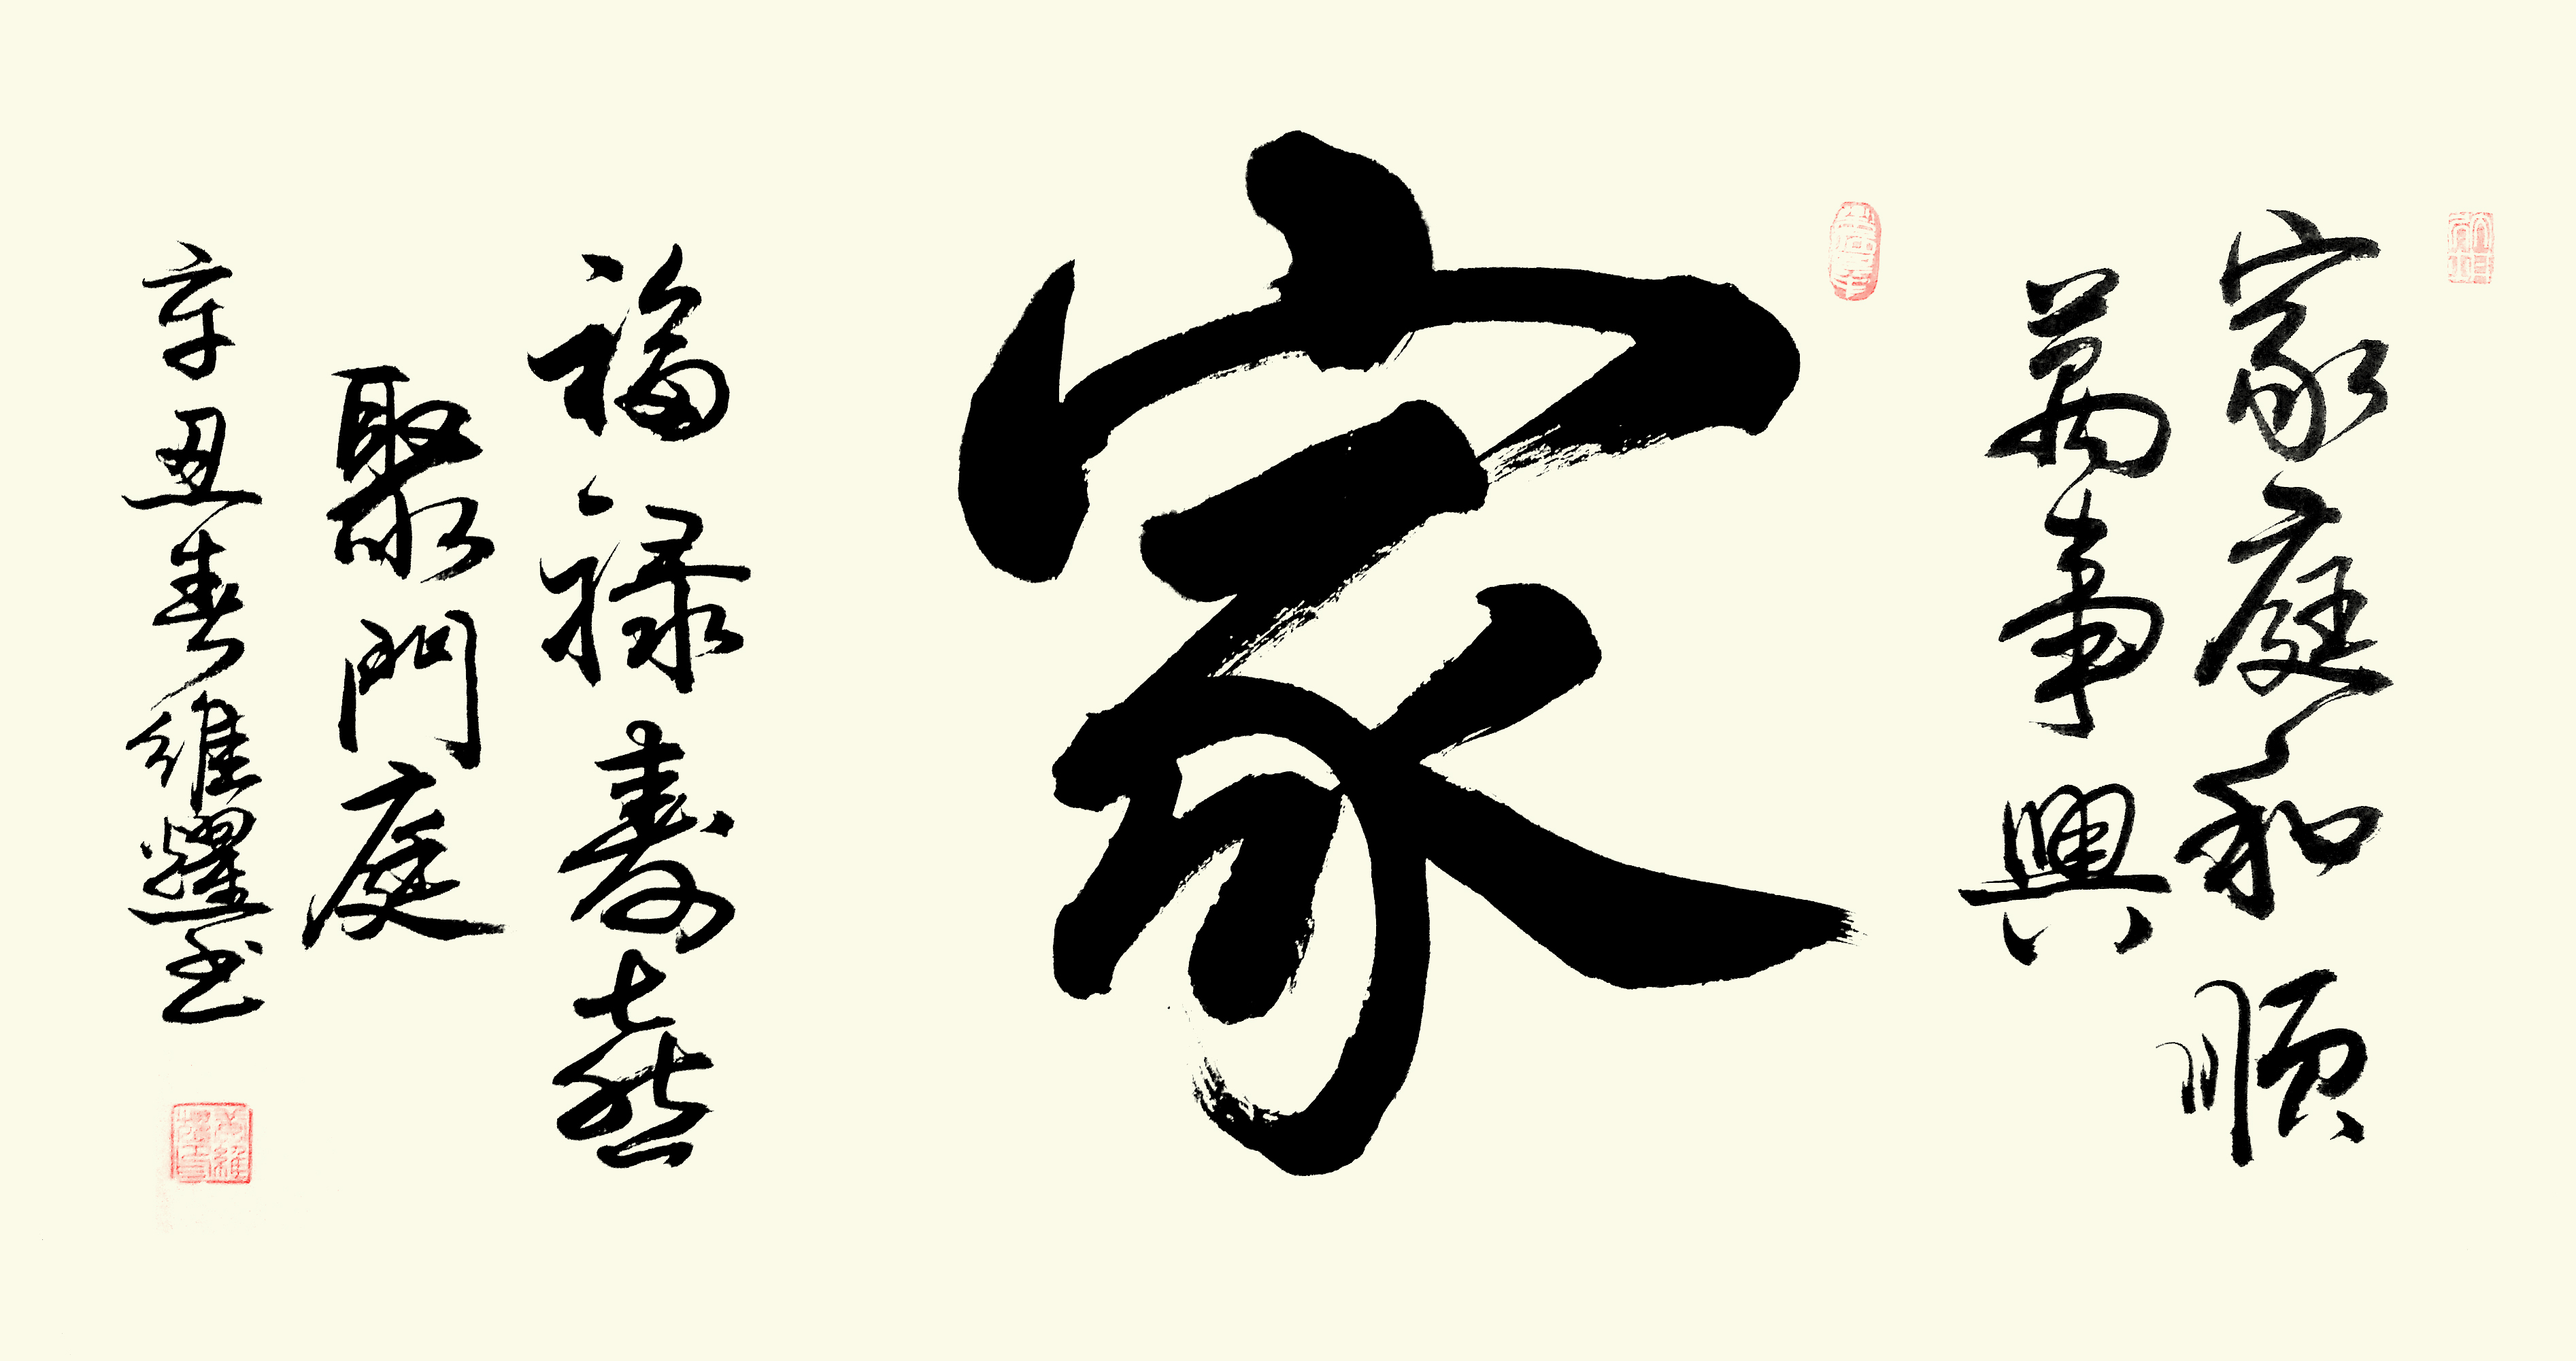 家庭和順
萬事興
家
福禄壽喜
聚門庭
辛丑春維耀書